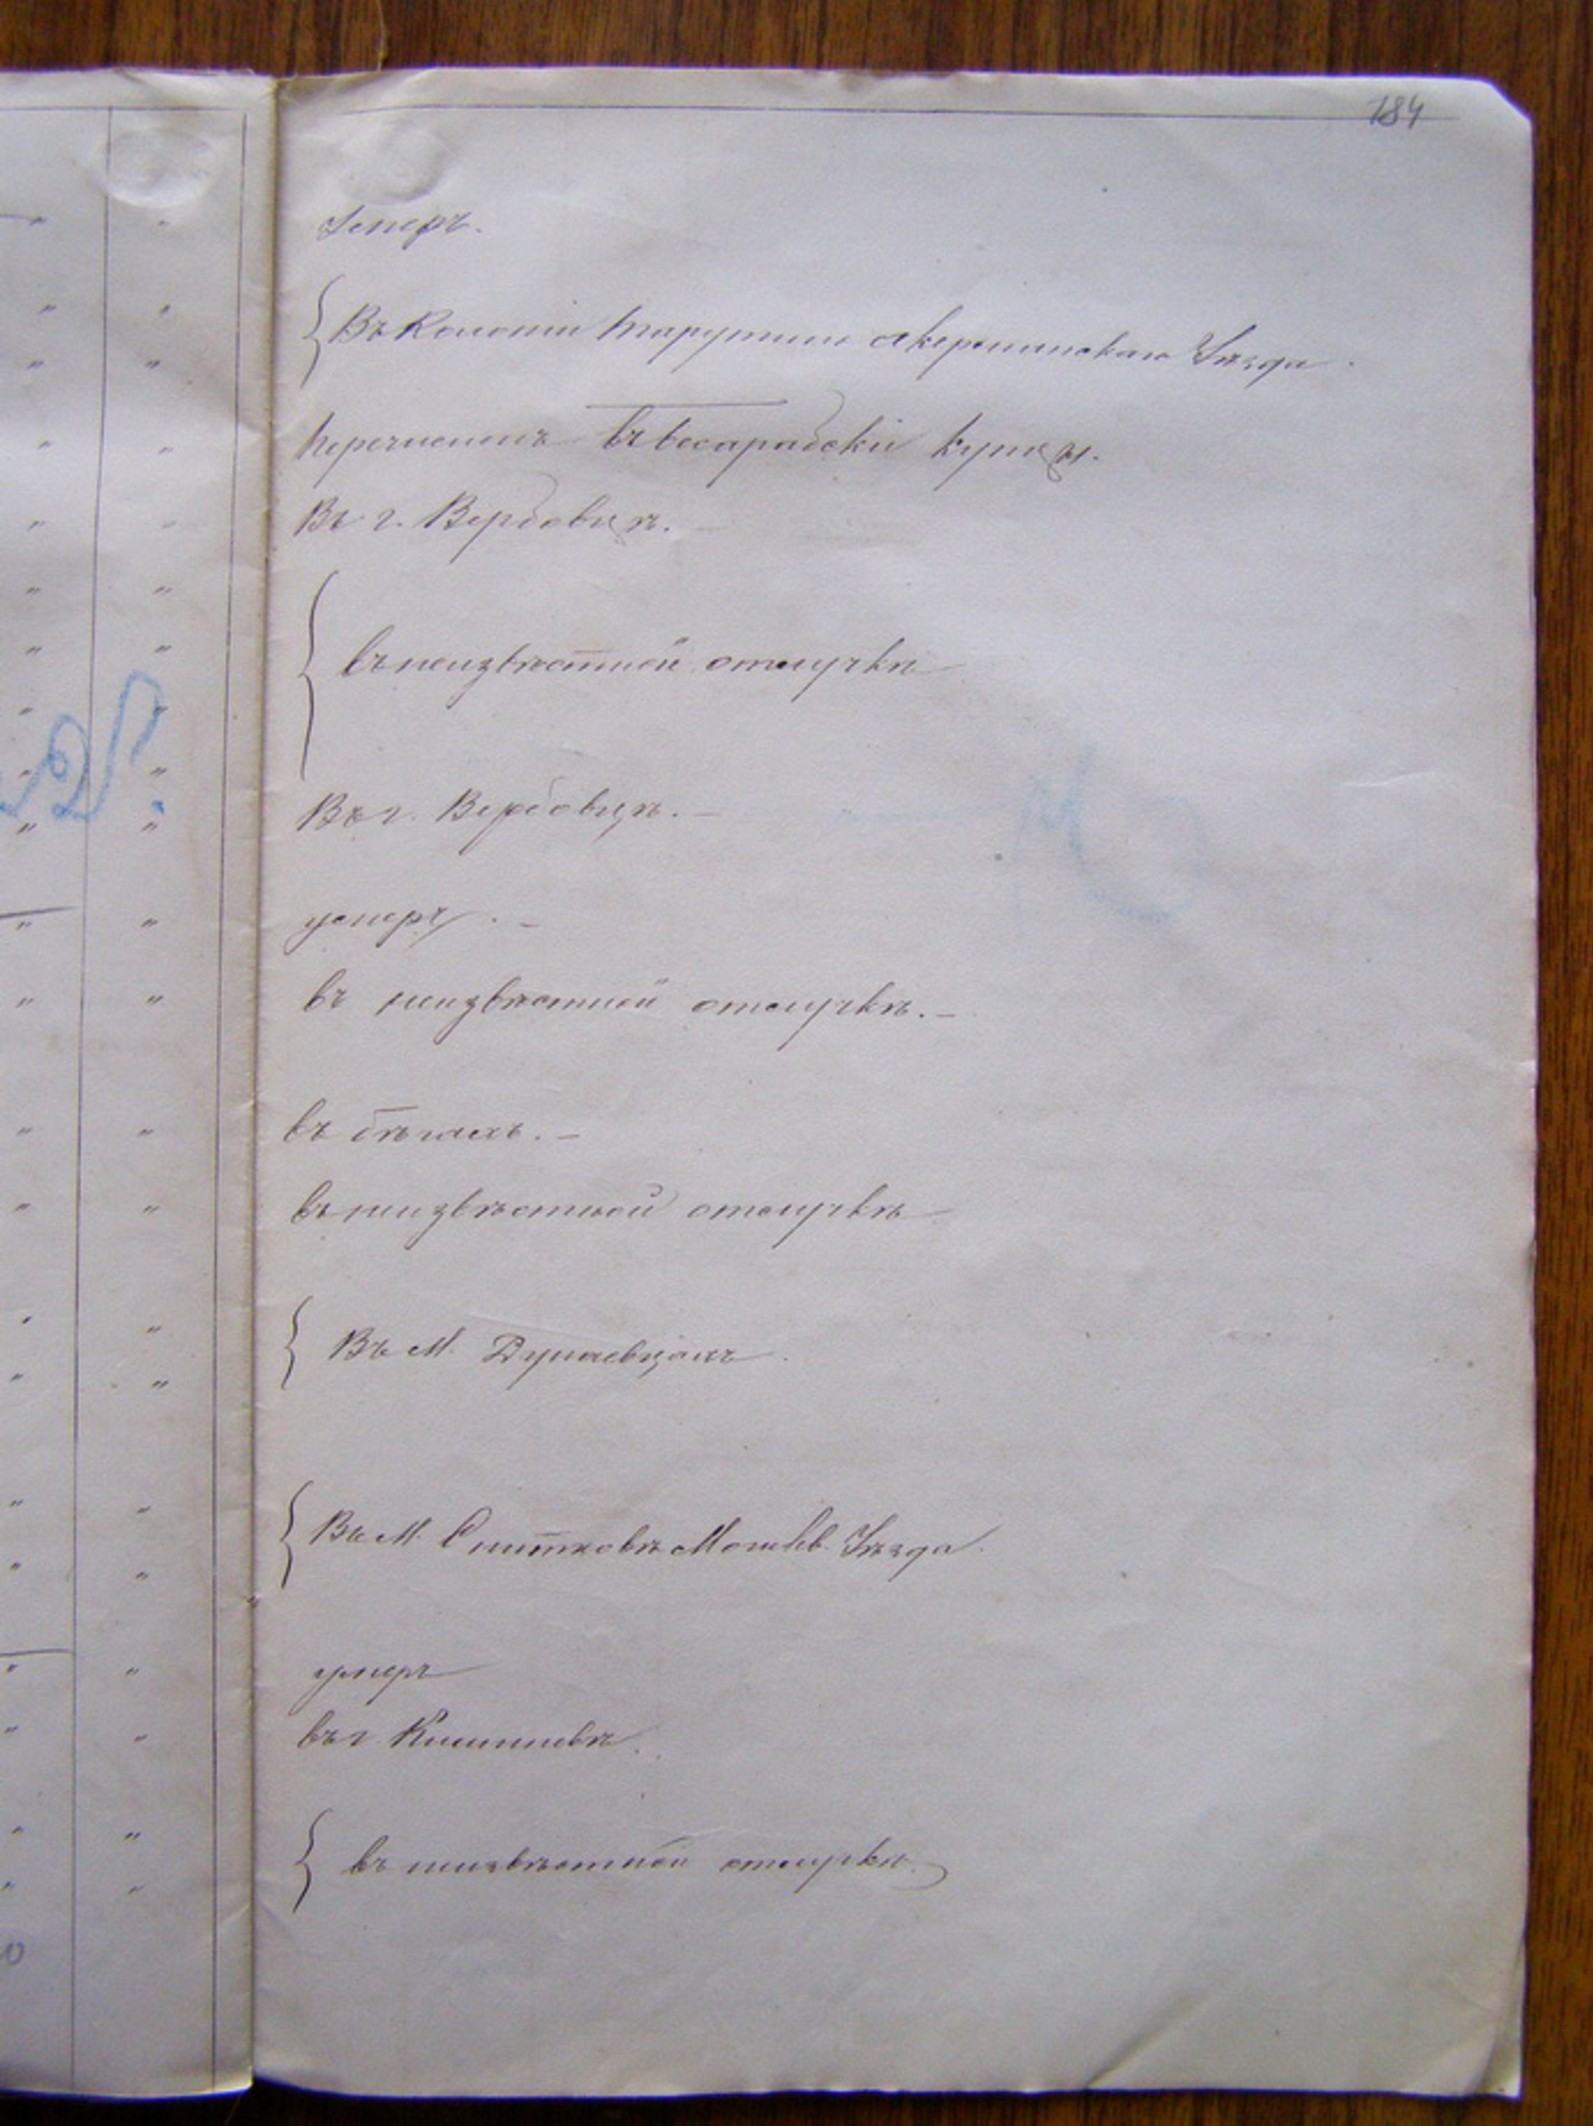 184
Умеръ.
Въ Колоніи Тарутино Акерманскаго Уѣзда.
перечисленъ въ бесарабскіи купцы.
Въ г. Вербовцѣ.
въ неизвѣстной отлучкѣ
Въ г. Вербовцѣ.
умеръ.
въ неизвѣстной отлучкѣ.
въ бѣгахъ.
въ неизвѣстной отлучкѣ
Въ М. Дунаевцахъ.
Въ М. Снитковѣ Могилев. Уѣзда.
умеръ
въ г. Кишиневѣ.
въ неизвѣстной отлучкѣ.